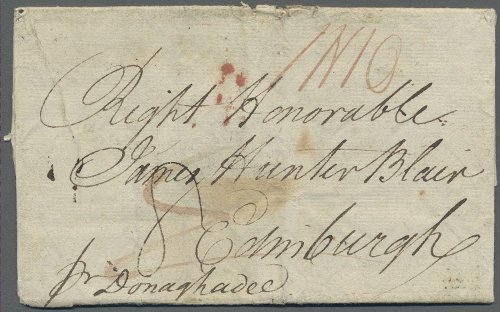 Right Honorable
James Hunter Blair
Edinburgh
8
pr Donaghadee